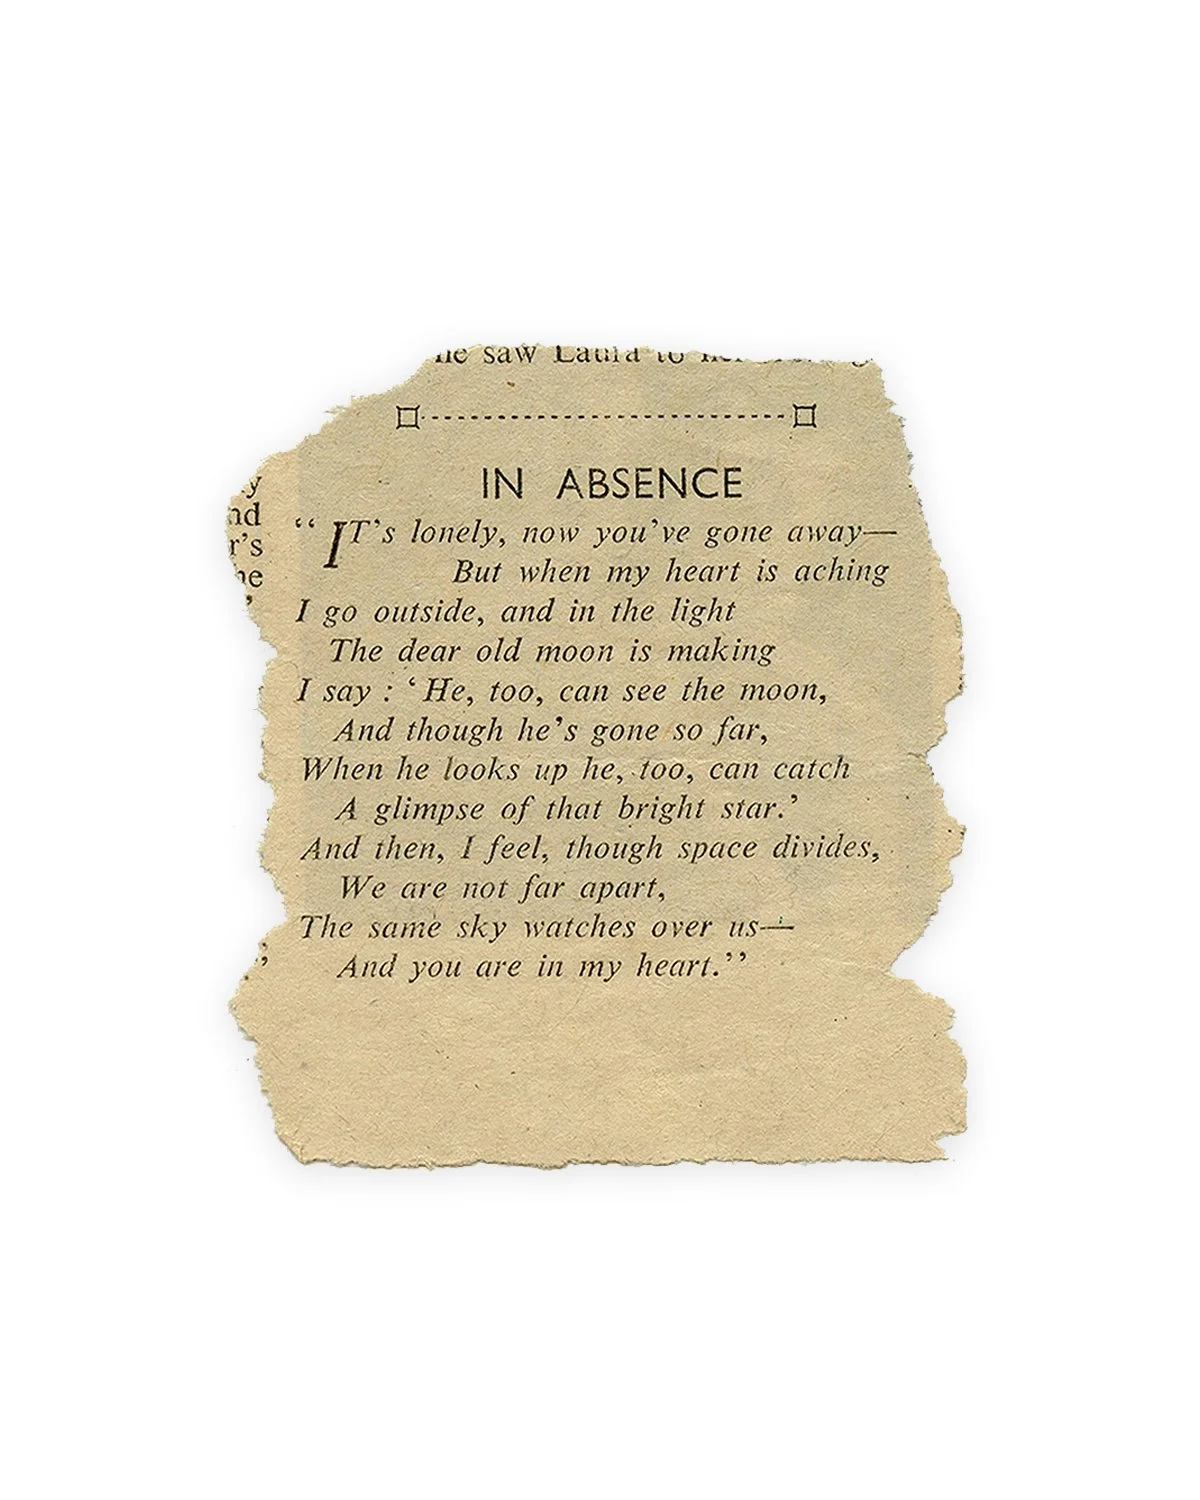 he saw Laura to her
IN ABSENCE
“IT’s lonely, now you’ve gone away—
But when my heart is aching
I go outside, and in the light
The dear old moon is making
I say : ‘He, too, can see the moon,
And though he’s gone so far,
When he looks up he, too, can catch
A glimpse of that bright star.’
And then, I feel, though space divides,
We are not far apart,
The same sky watches over us—
And you are in my heart.”